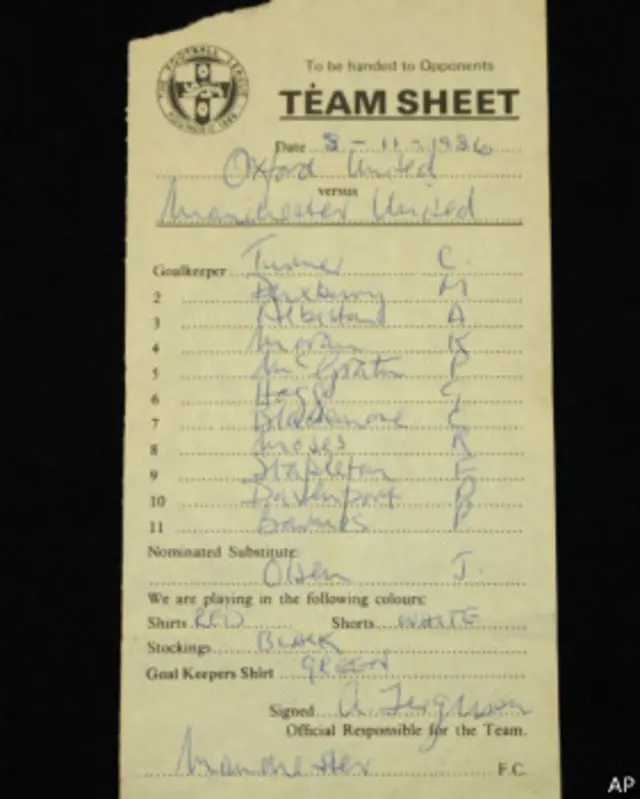 THE FOOTBALL LEAGUE
To be handed to Opponents
TEAM SHEET
Date 8 - 11 - 1986
Oxford United
versus
Manchester United
Goalkeeper Turner C.
2 Duxbury M
3 Albiston A
4 Moran K
5 McGrath P
6 Hogg G
7 Blackmore C
8 Moses R
9 Stapleton F
10 Davenport P
11 Barnes P
Nominated Substitute:
Olsen J.
We are playing in the following colours:
Shirts RED Shorts WHITE
Stockings BLACK
Goal Keepers Shirt GREEN
Signed A. Ferguson
Official Responsible for the Team.
Manchester F.C.
AP